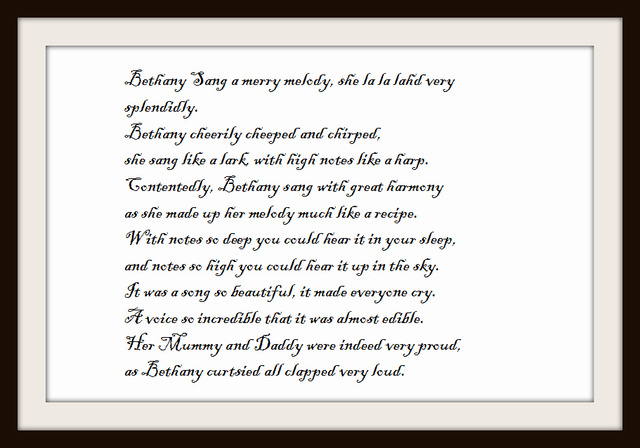 Bethany Sang a merry melody, she la la lahd very
splendidly.
Bethany cheerily cheeped and chirped,
she sang like a lark, with high notes like a harp.
Contentedly, Bethany sang with great harmony
as she made up her melody much like a recipe.
With notes so deep you could hear it in your sleep,
and notes so high you could hear it up in the sky.
It was a song so beautiful, it made everyone cry.
A voice so incredible that it was almost edible.
Her Mummy and Daddy were indeed very proud,
as Bethany curtsied all clapped very loud.